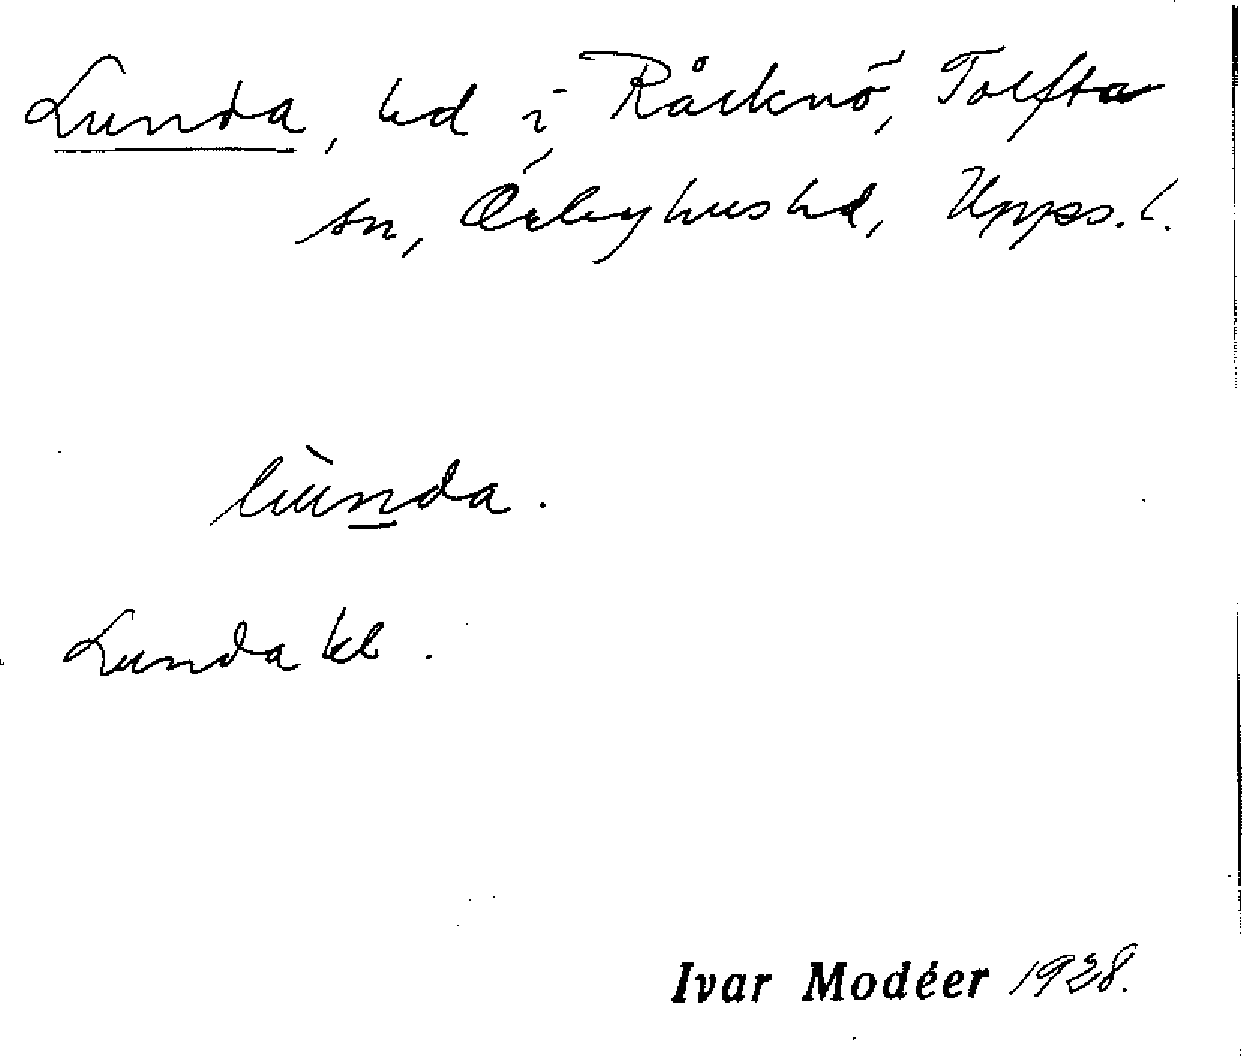 Lunda, hd i Råcknö, Tolfta
sn, Örbyhus hd, Upps. l.
lùnda.
Lunda kl.
Ivar Modéer 1938.